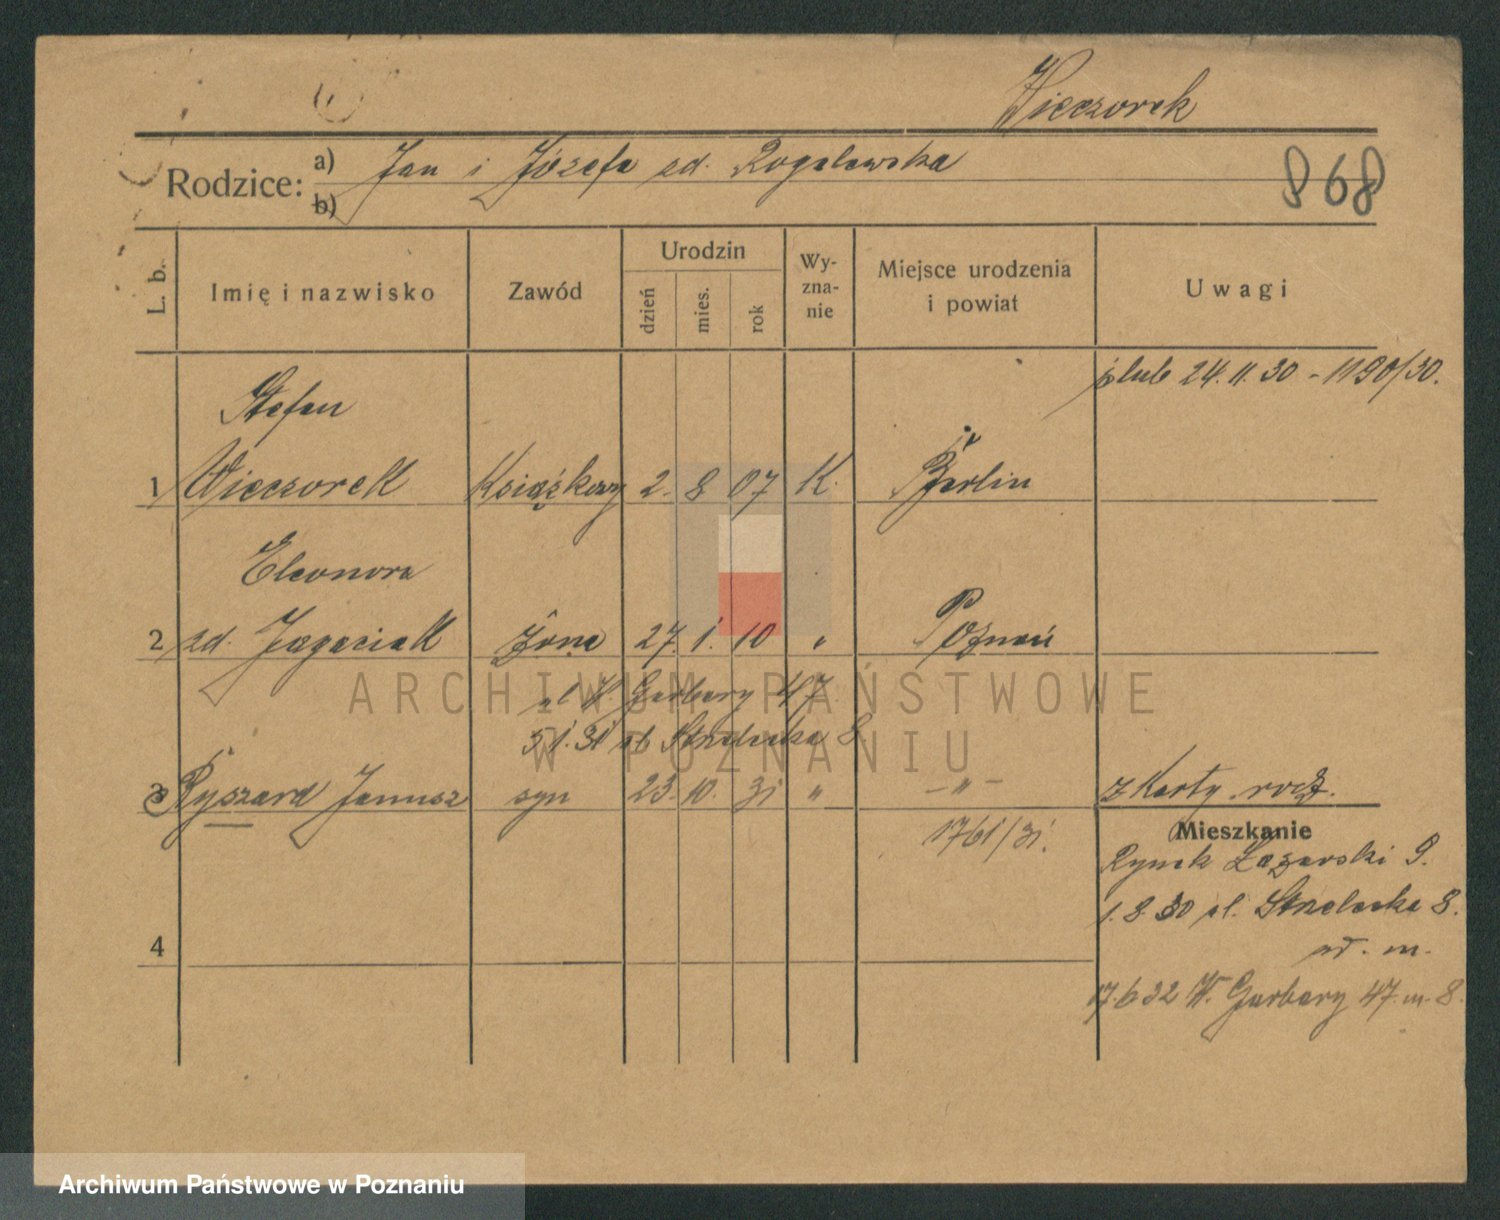 Wieczorek
Rodzice: a) Jan i Józefa zd. Rogalewska
b)
868
L. b.
Imię i nazwisko
Zawód
Urodzin
dzień
mies.
rok
Wy-
zna-
nie
Miejsce urodzenia
i powiat
Uwagi
ślub 24.11.30 - 1190/30.
Stefan
1 Wieczorek Książkowy 2. 8 07 K. Berlin
Eleonora
2 zd. Jagaciak żona 27. 1. 10 " Poznań
W. Garbary 47
5.1.31 ul. Strzelecka 8
3 Ryszard Janusz syn 23. 10. 31 " - " - z Karty rodz.
1761/31.
Mieszkanie
Rynek Łazarski 9.
1.8.30 ul. Strzelecka 8.
4
17.6 32 W. Garbary 47. m. 8.
ARCHIWUM PAŃSTWOWE
W POZNANIU
Archiwum Państwowe w Poznaniu